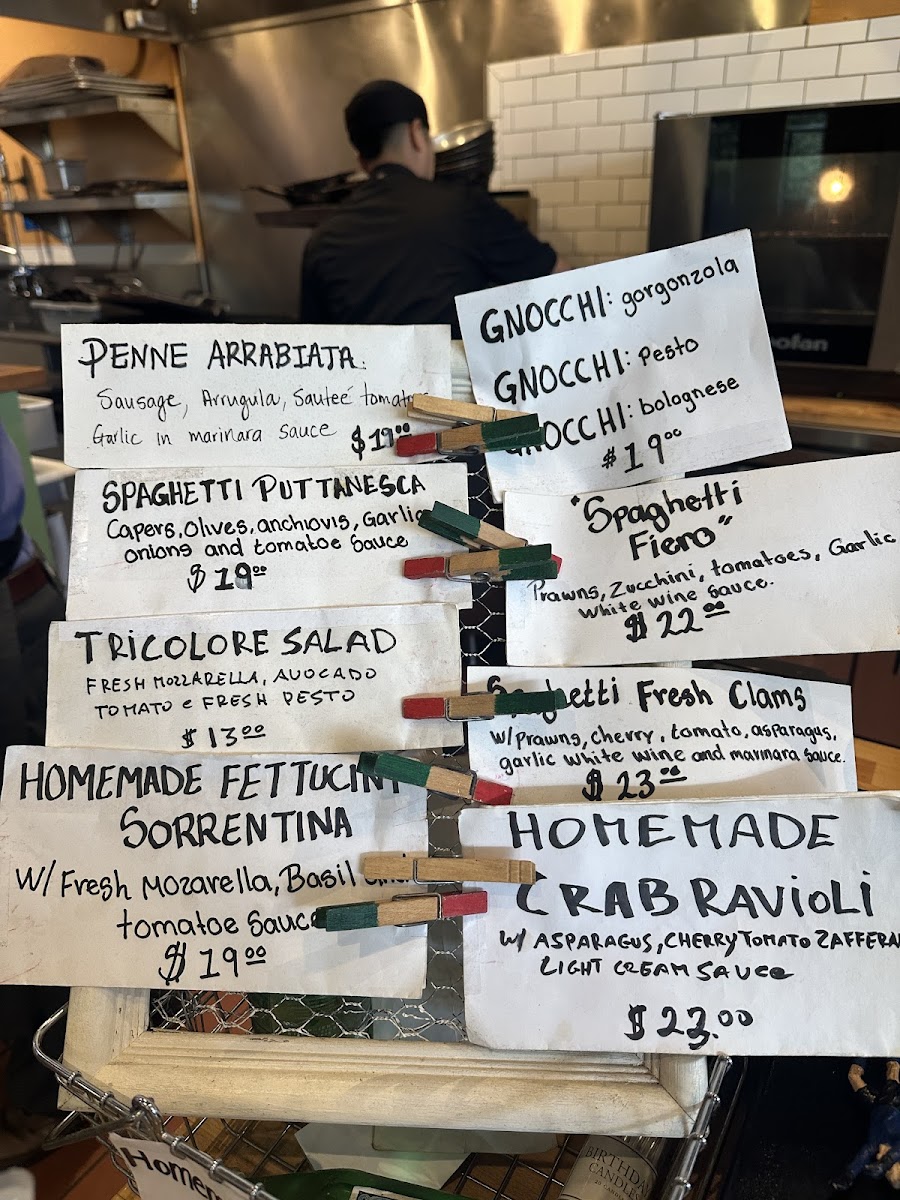 PENNE ARRABIATA
Sausage, Arrugula, Sauteé
Garlic in marinara sauce $19.00
SPAGHETTI PUTTANESCA
Capers, Olives, anchiovis, Garlic
onions and tomatoe Sauce
$19.00
TRICOLORE SALAD
FRESH MOZZARELLA, AVOCADO
TOMATO e FRESH PESTO
$13.00
HOMEMADE
SORRENTINA
W/ Fresh Mozarella, Basil
tomatoe Sauce
$19.00
GNOCCHI: gorgonzola
GNOCCHI: Pesto
GNOCCHI: bolognese
$19.00
"Spaghetti
Fiero"
Prawns, Zucchini, tomatoes, Garlic
White wine sauce.
$22.00
Spaghetti Fresh Clams
W/Prawns, cherry, tomato, asparagus,
garlic white wine and marinara sauce.
$23.00
HOMEMADE
CRAB RAVIOLI
W/ ASPARAGUS, CHERRY TOMATO
LIGHT CREAM SAUCE
$23.00
BIRTHDAY
CANDLES